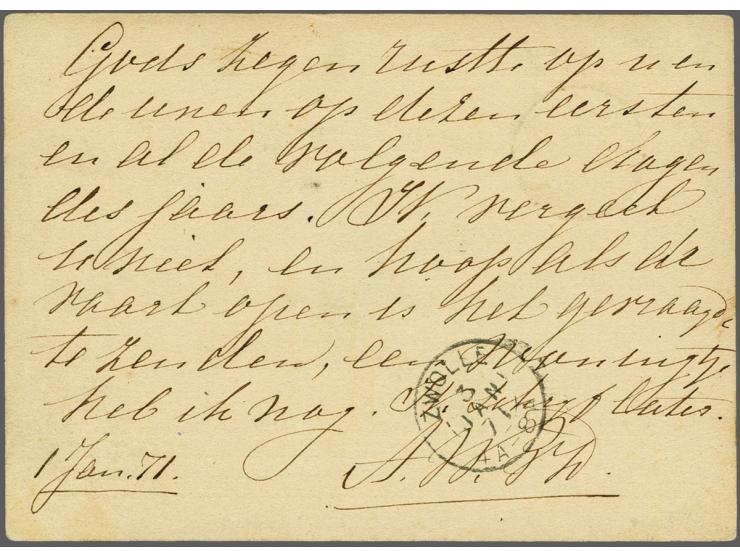 Gods zegen rustte op u en
de uwen op dezen eersten
en al de volgende dagen
des jaars. Ik vergeet
u niet, en hoop als de
vaart open is het gevraagde
te zenden, een
heb ik nog. later.
1 Jan. 71.
ZWOLLE
3
JAN
71